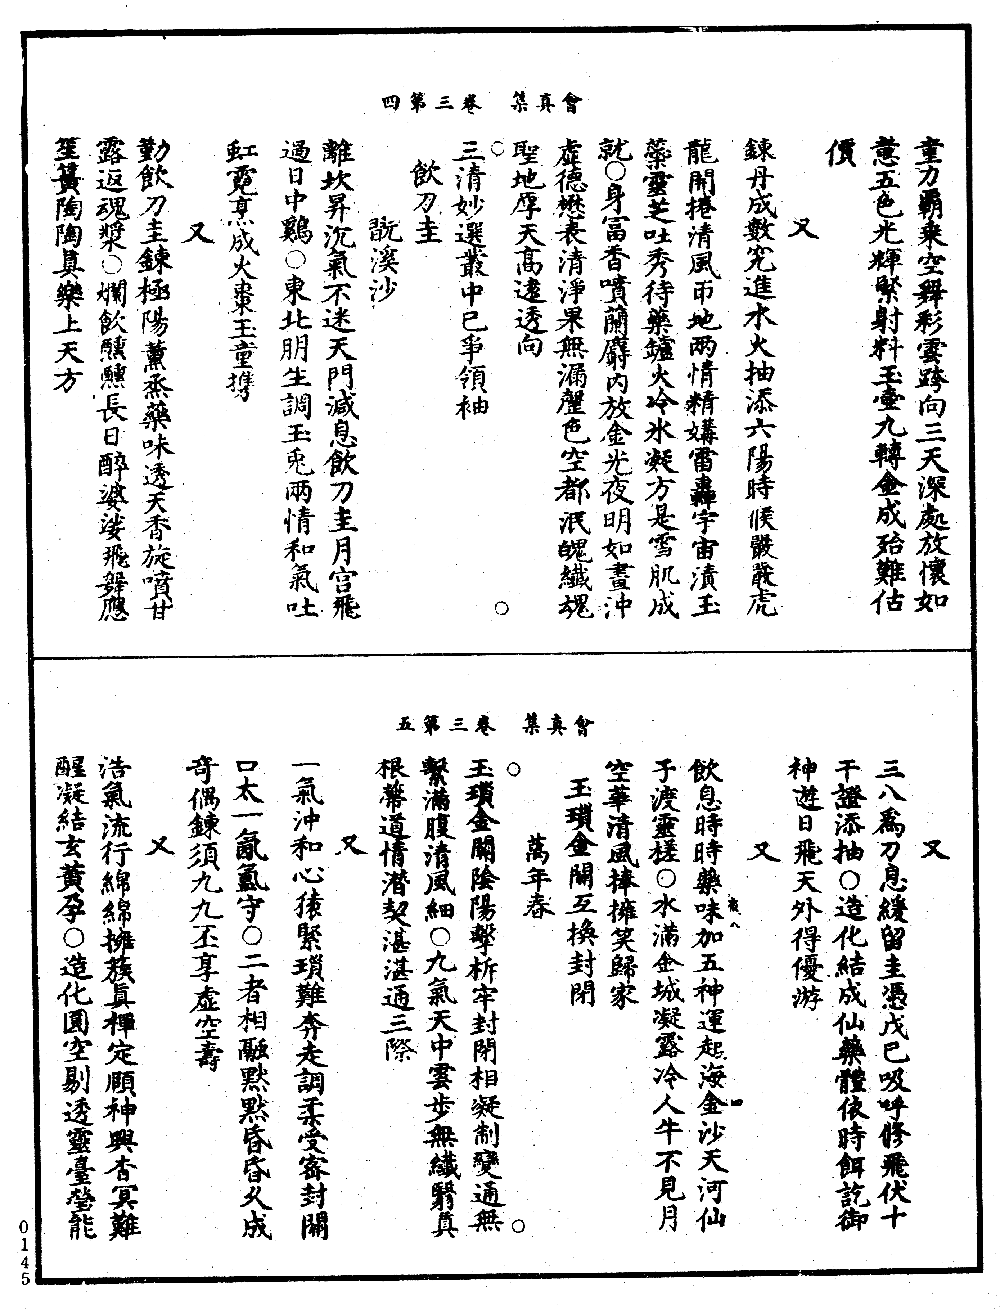 會真集　卷三第四
童力霸乘空舞彩雲跨向三天深處放懷如
慧五色光輝緊射料玉壺九轉金成殆難估
價
又
鍊丹成數究進水火抽添六陽時候嚴嚴虎
龍開捲清風帀地兩情精媾雷轟宇宙濆玉
蘂靈芝吐秀待藥鑪火冷氷凝方是雪肌成
就○身富香噴蘭麝內放金光夜明如晝沖
虛德懋表清淨果無漏塵色空都泯魄纖魂
聖地厚天高遠透向
三清妙選叢中已爭領袖
飲刀圭
翫溪沙
離坎昇沉氣不迷天門減息飲刀圭月宮飛
過日中鷄○東北朋生調玉兎兩情和氣吐
虹霓烹成火棗玉童攜
又
勤飲刀圭鍊極陽薰烝藥味透天香旋噴甘
露返魂漿○爛飲醺醺長日醉婆娑飛舞應
笙簧陶陶真樂上天方
會真集　卷三第五
又
三八爲刀息緩留圭憑戊巳吸呼修飛伏十
干證添抽○造化結成仙藥體依時餌訖御
神遊日飛天外得優游
又
飲息時時藥味加五神運起海金沙天河仙
子渡靈槎○水滿金城凝露冷人牛不見月
空華清風捧擁笑歸家
玉瑣金關互換封閉
萬年春
玉瑣金關陰陽擊柝牢封閉相凝制變通無
繫滿腹清風細○九氣天中雲步無纖翳真
根蔕道情潛契湛湛通三際
又
一氣沖和心猿緊瑣難奔走調柔受密封關
口太一氤氳守○二者相融默默昏昏久成
奇偶鍊須九九丕享虛空壽
又
浩氣流行綿綿擁蔟真禪定頤神興杳冥難
醒凝結玄黃孕○造化圓空剔透靈臺瑩能
0145